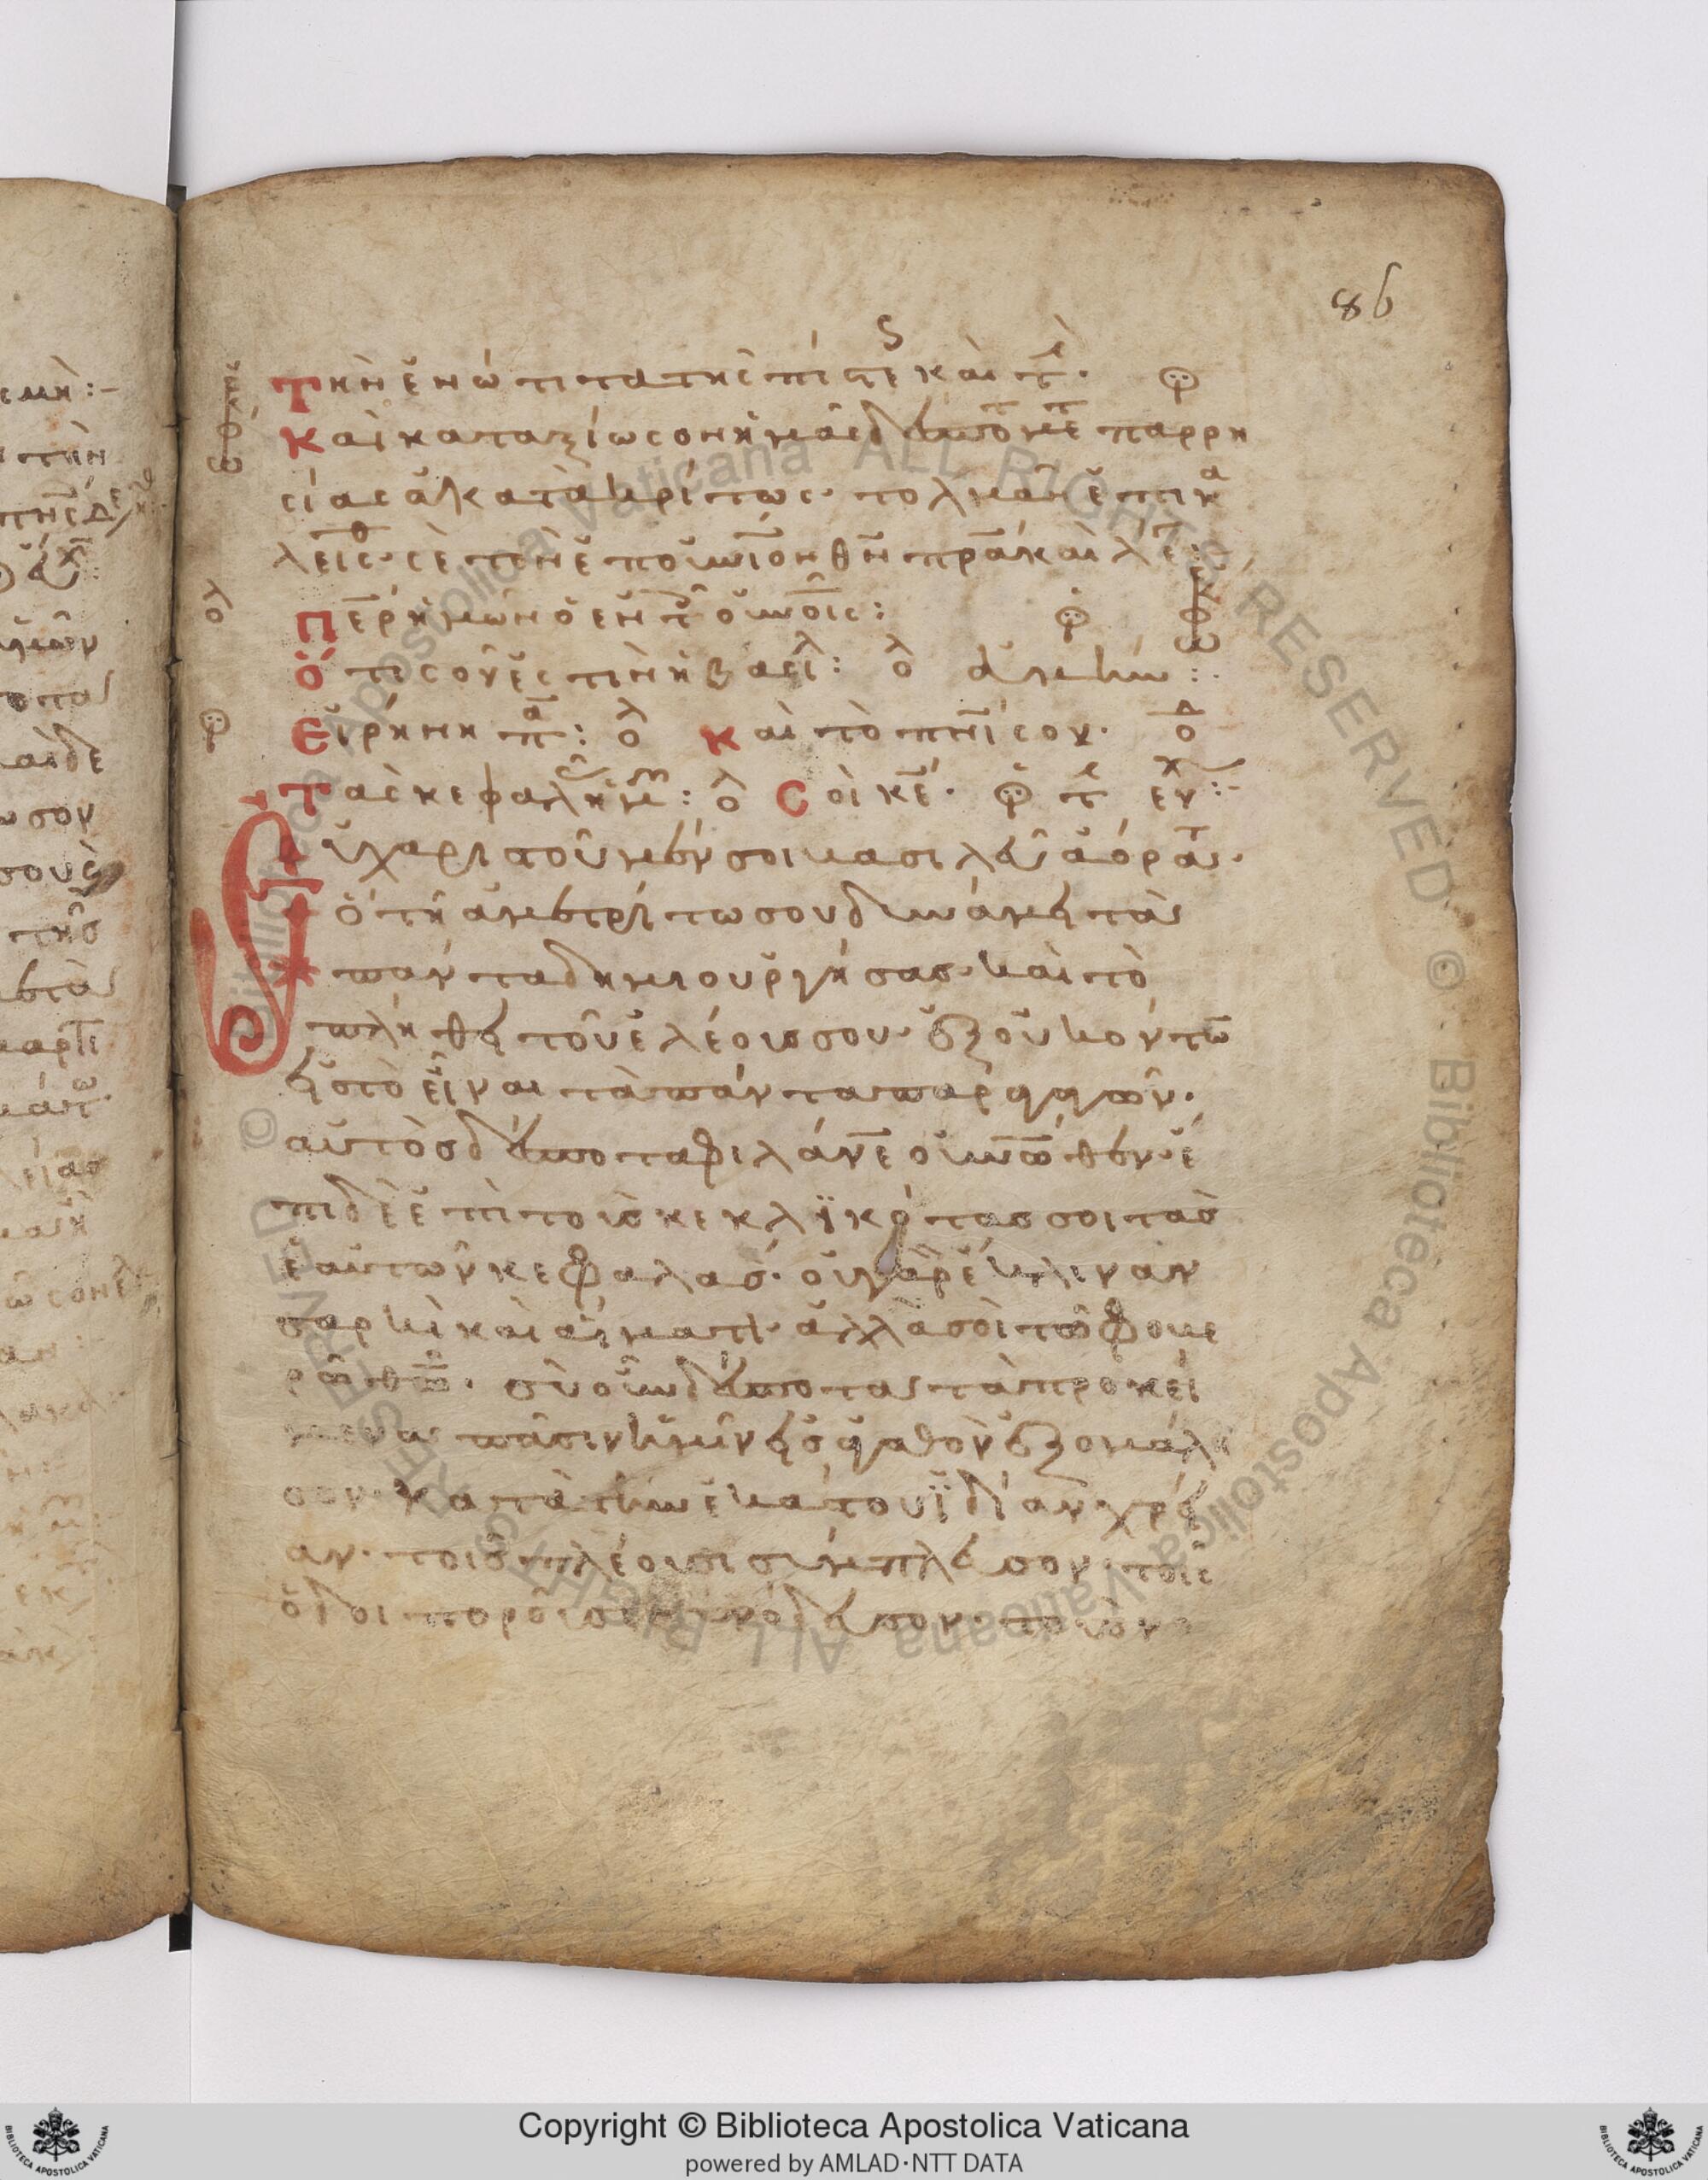 86
Τὴν ἑνότητα τῆς πίστε καὶ τ
Καὶ καταξίωσον ἡμᾶς δέσποτ με παρρη
σίας ἀκατακρίτως· τολμᾶν ἐπικα
λεῖσθ· σὲ τὸν ἐπουνιον θν πρα καὶ λε:
Περ ἡμῶν ὁ ἐν τ οὐνοις:
Ὅτι σοῦ ἐστιν ἡ βασι: ολ ἀμὴν:
Εἰρήνη πα: ολ Καὶ τὸ πνι σου· ὁ δ
Τὰς κεφαλ ἡμ: ολ Σοὶ κε·
Εὐχαριστοῦμέν σοι βασιλεῦ ἀόρατ·
ὁ τῆ ἀμετρήτω σου δυνάμει τὰ
πάντα δημιουργήσας· καὶ τὸ
πλήθει τοῦ ἐλέους σου· ἐξ οὐκ όντω
εἰς τὸ εἶναι τὰ πάντα παραγαγών·
αὐτὸς δέσποτα φιλάνε οὐνωθεν· ἔ
πιδε ἐπὶ τοὺς κεκλϊκότας σοι τὰς
ἑαυτῶν κεφαλάς· οὐ γὰρ ἔκλιναν
σαρκὶ καὶ αἵματι· ἀλλὰ σοὶ τῶ φοβε
ρῶ θω· σὺ οὖν δέσποτα τὰ προκεί
μενα πᾶσιν ἡμῖν εἰς ἀγαθὸν ἐξομάλι
σον· κατὰ τὴν ἑκάστου ἰδίαν χρεί
αν· τοῖς πλέουσι σύμπλευσον· τοῖς
ὁδοιποροῦσιν συνόδευσον· τοὺς ν